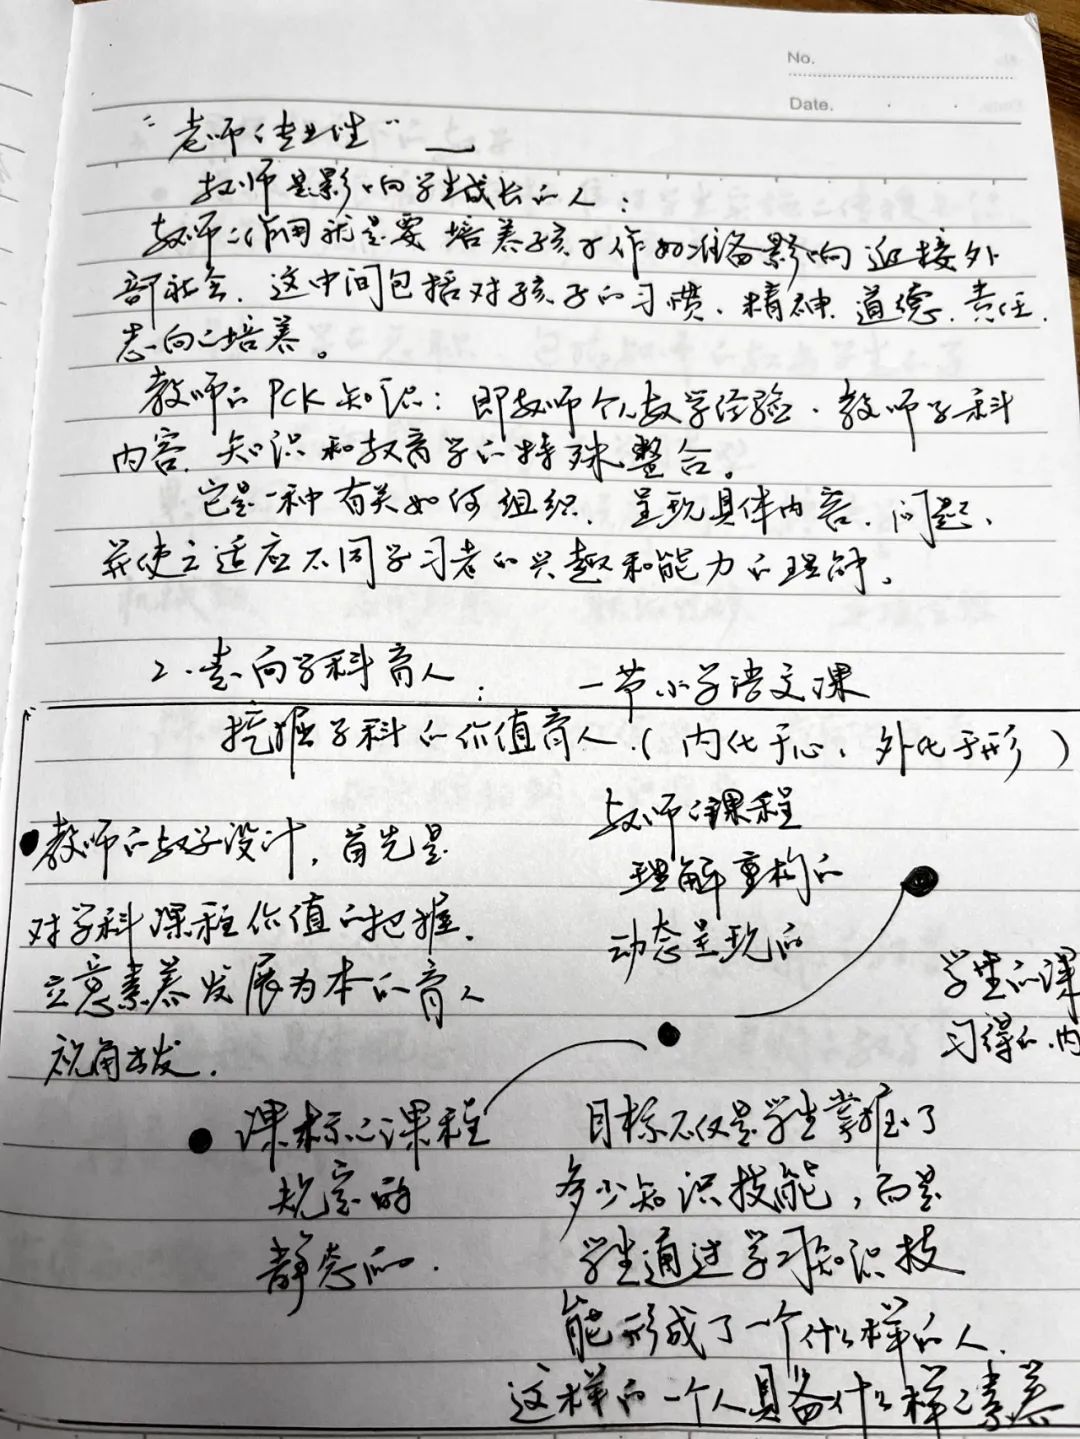 No.
Date.
"老师的专业性"
教师是影响学生成长的人：
教师的作用就是要培养孩子作好准备影响迎接外
部社会，这中间包括对孩子的习惯、精神、道德、责任、
志向的培养。
教师的PCK知识：即教师个人教学经验、教师学科
内容、知识和教育学的特殊整合。
它是一种有关如何组织、呈现具体内容、问题、
并使之适应不同学习者的兴趣和能力的理解。
2、走向学科育人： 一节小学语文课
挖掘学科的价值育人（内化于心、外化于形）
教师的教学设计，首先是
对学科课程价值的把握，
立意素养发展为本的育人
视角出发.
教师的课程
理解重构的
动态呈现的
学生的课
习得的、内
课标的课程
规定的
静态的.
目标不仅是学生掌握了
多少知识技能，而是
学生通过学习知识技
能形成了一个什么样的人.
这样的一个人具备什么样的素养